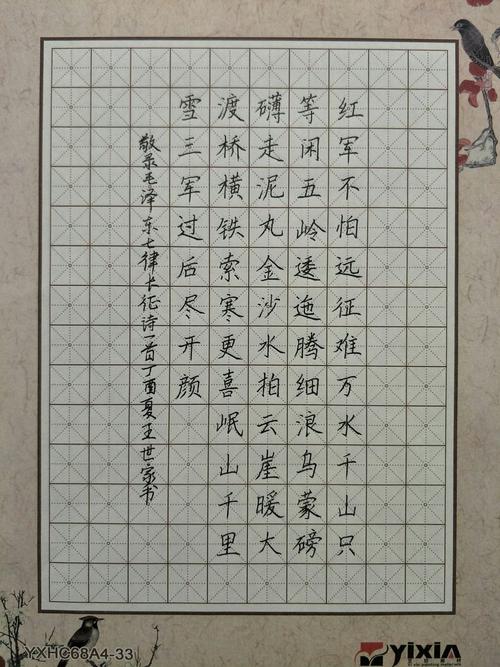 红军不怕远征难万水千山只
等闲五岭逶迤腾细浪乌蒙磅
礴走泥丸金沙水拍云崖暖大
渡桥横铁索寒更喜岷山千里
雪三军过后尽开颜
敬录毛泽东七律长征诗一首丁酉夏王世家书
YXHC68A4-33
YiXiN